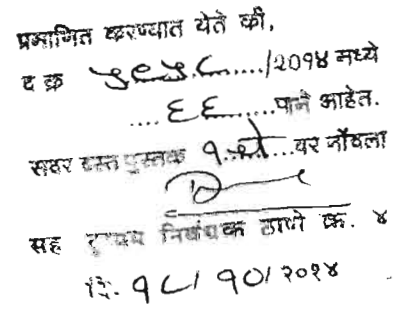 प्रमाणित करण्यात येते की,
द क्र ५८५८...../२०१४ मध्ये
....६६......पाने आहेत.
सदर दस्त पुस्तक १.......वर नोंदला
सह दुय्यम निबंधक ठाणे क्र. ४
दि. १८/१०/२०१४